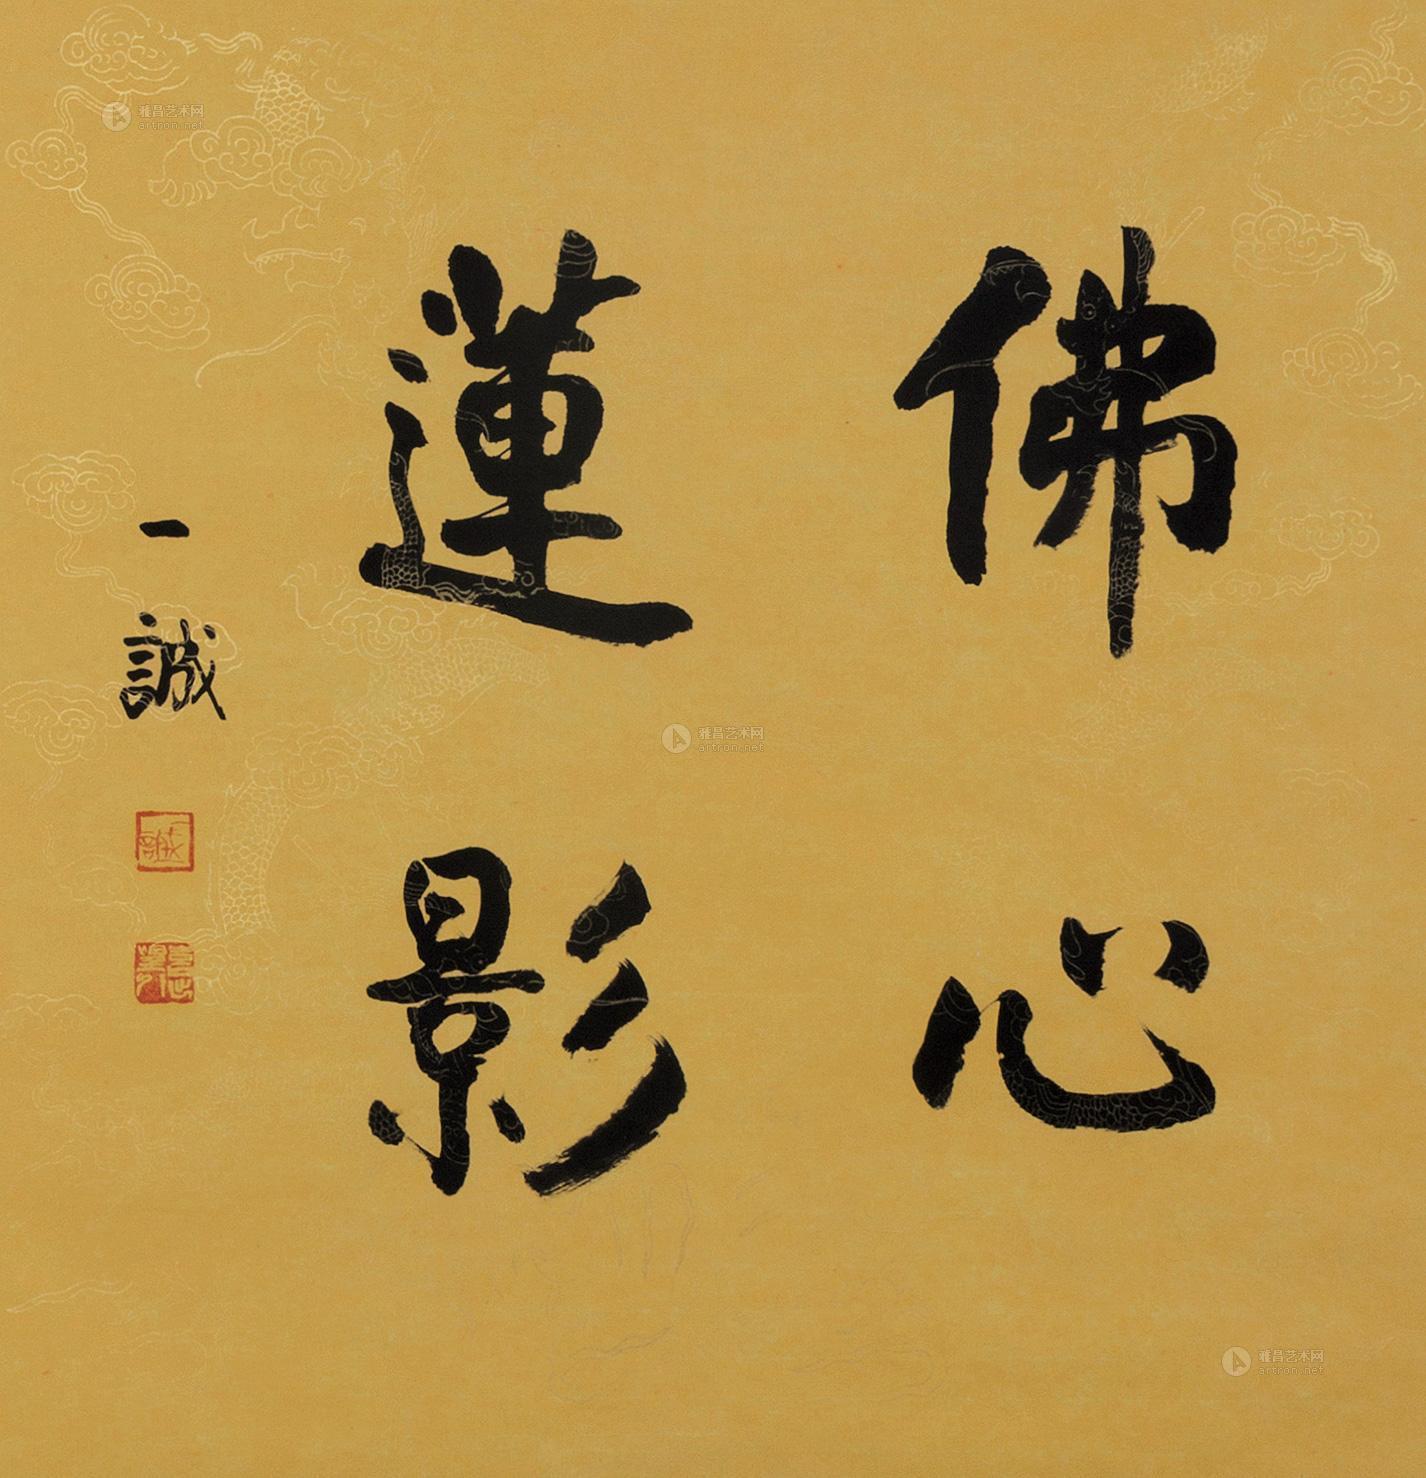 佛心
蓮影
一誠
一誠
雅昌艺术网
artron.net
雅昌艺术网
artron.net
雅昌艺术网
artron.net